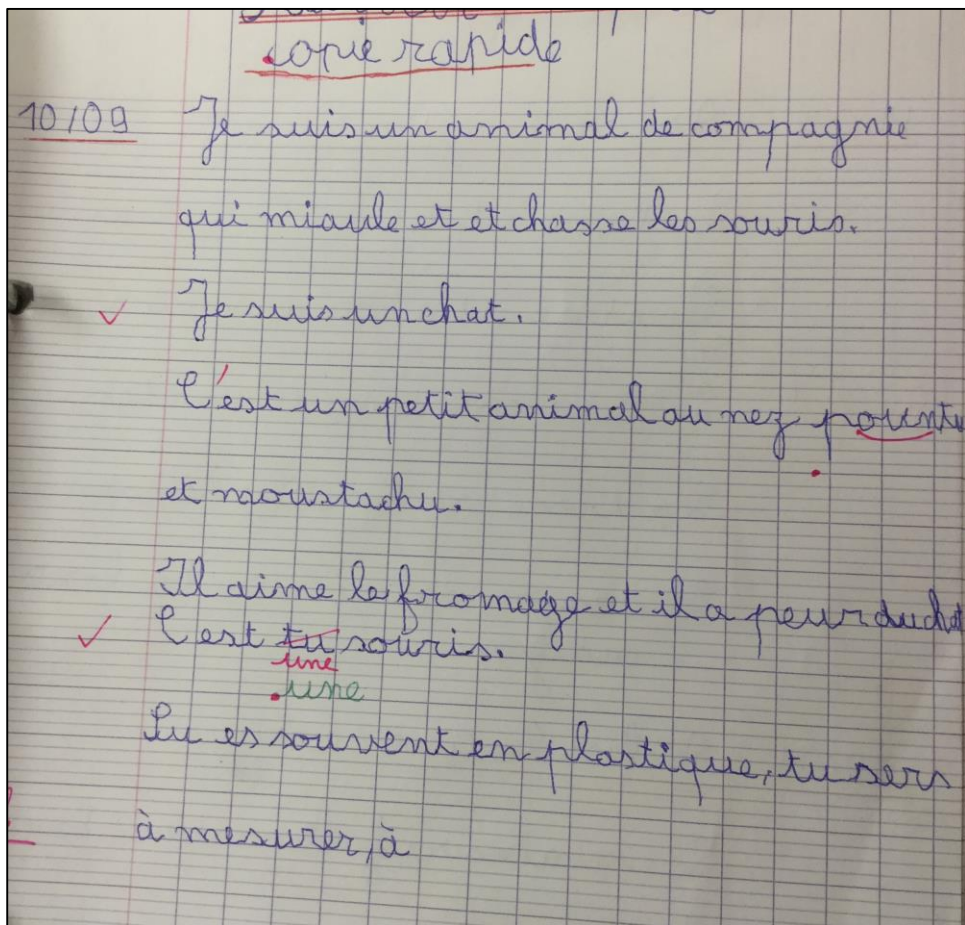 copie rapide
10/09 Je suis un animal de compagnie
qui miaule et et chasse les souris.
Je suis un chat.
C'est un petit animal au nez pountu
et moustachu.
Il aime le fromage et il a peur du chat
C'est tu souris.
une
une
Tu es souvent en plastique, tu sers
à mesurer, à